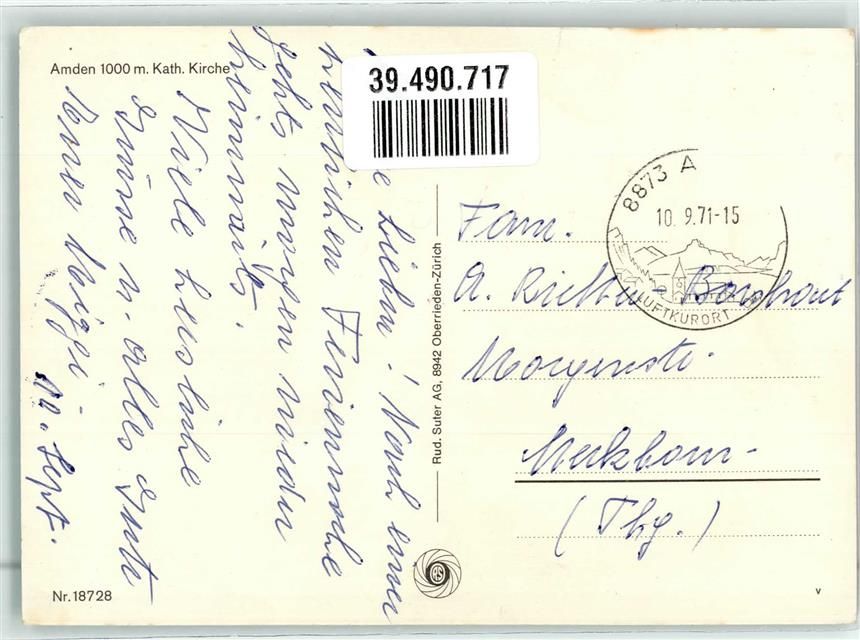 Amden 1000 m. Kath. Kirche
39.490.717
Lieben! Nach einer
herrlichen Ferienwoche
gehts morgen wieder
heimwärts.
Viele herzliche
Grüsse u. alles Gute
10. Sept.
Rud. Suter AG, 8942 Oberrieden-Zürich
8873 A
10. 9.71-15
LUFTKURORT
Fam.
A.
Morgenstr.
(Thg.)
Nr. 18728
v